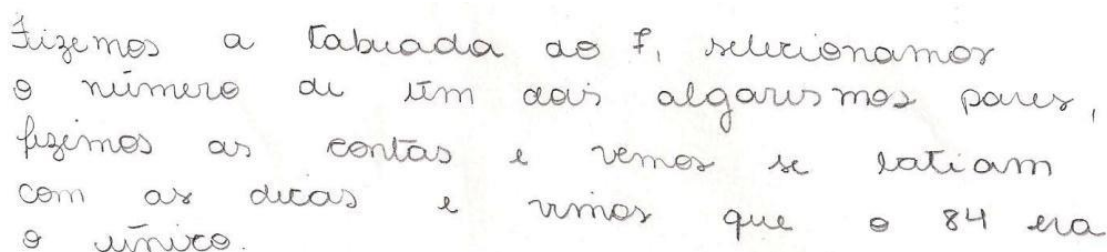 Fizemos a tabuada do 7, selecionamos
o número de tem dois algarismos pares,
fizemos as contas e vemos se batiam
com as dicas e vimos que o 84 era
o único.